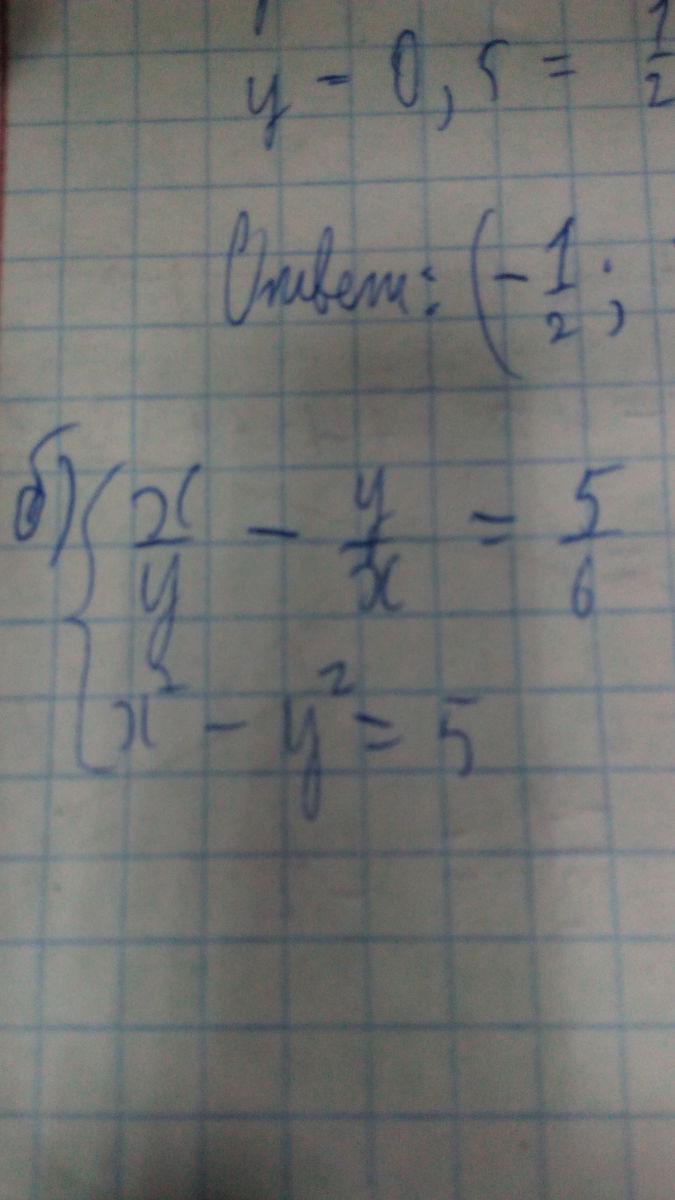 y - 0,5 = 1/2
Ответ: (-1/2;
б) { x/y - y/x = 5/6
x² - y² = 5